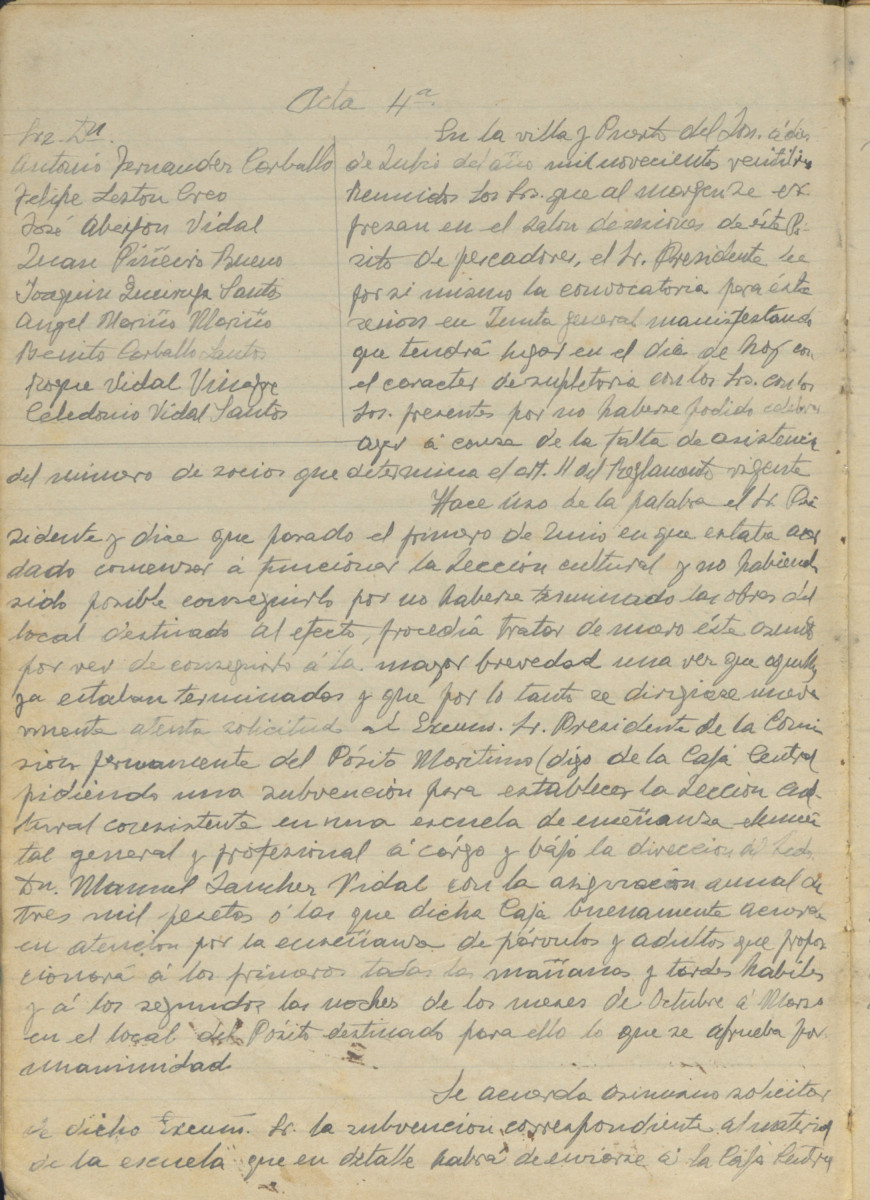 Acta 4ª.
Srs. Dn.
Antonio Fernandez Carballo
Felipe Leston Creo
José Abeijon Vidal
Juan Piñeiro Bueno
Joaquin Queiruga Santos
Angel Mariño Mariño
Benito Carballo Santos
Roque Vidal Vinagre
Celedonio Vidal Santos
En la villa y Puerto del Son. á dos
de Julio del año mil novecientos veintitres
Reunidos los Srs. que al margen se ex-
presan en el salon de sesiones de éste Pó-
sito de pescadores, el Sr. Presidente lee
por si mismo la convocatoria para ésta
sesion en Junta general manifestando
que tendrá lugar en el dia de hoy con
el caracter de supletoria con los Srs. con los
Srs. presentes por no haberse podido celebrar
ayer á causa de la falta de asistencia
del número de socios que determina el art. 11 del Reglamento vigente
Hace úso de la palabra el Sr. Pre-
sidente y dice que pasado el primero de Junio en que estaba acor
dado comenzar á funciónar la Sección cultural y no habiendo
sido posible conseguirlo por no haberse terminado las obras del
local destinado al efecto, procedia tratar de nuevo éste asunto
por ver de conseguirlo á la mayor brevedad una vez que aquellas
ya estaban terminadas y que por lo tanto se dirigiese nueva
mente atenta solicitud al Excmo. Sr. Presidente de la Comi
sion permanente del Pósito Maritimo (digo de la Caja Central
pidiendo una subvención para establecer la Sección cul-
tural consistente en una escuela de enseñanza elemen
tal general y profesional á cargo y bájo la direccion del
Dn. Manuel Sanchez Vidal con la asignación anual de
tres mil pesetas ó las que dicha Caja buenamente acuerde
en atención por la enseñanza de párvulos y adultos que propor
cionará á los primeros todas las mañanas y tardes hábiles
y á los segundos las noches de los meses de Octubre á Marzo
en el local del Pósito destinado para ello lo que se aprueba por
unanimidad
Se acuerda asimismo solicitar
de dicho Excmo. Sr. la subvencion correspondiente al material
de la escuela que en détalle habrá de enviarse á la Caja Central